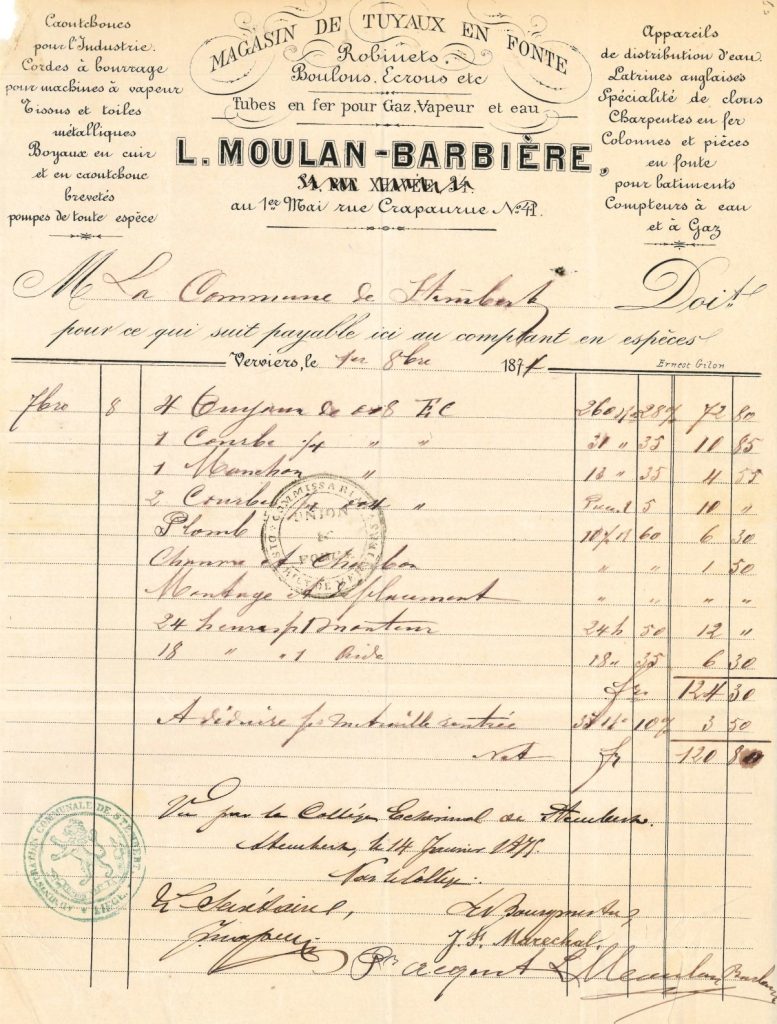 Caoutchoucs
pour l'Industrie.
Cordes à bourrage
pour machines à vapeur
Tissus et toiles
métalliques
Boyaux en cuir
et en caoutchouc
brevetés
pompes de toute espèce
MAGASIN DE TUYAUX EN FONTE
Robinets,
Boulons, Ecrous etc
Tubes en fer pour Gaz, Vapeur et eau
L. MOULAN-BARBIÈRE,
au 1er Mai rue Crapaurue No 41.
Appareils
de distribution d'eau.
Latrines anglaises
Spécialité de clous
Charpentes en fer
Colonnes et pièces
en fonte
pour batiments
Compteurs à eau
et à Gaz
M La Commune de Stembert Doit
pour ce qui suit payable ici au comptant en espèces
Verviers, le 1er 8bre 1874
Ernest Gilon
7bre 8 4 Tuyaux de 0.08 EC 260 28 72 80
1 Courbe 1/4 " " 31 " 35 10 85
1 Manchon " 13 " 35 4 55
2 Courbes 1/4 " 5 10 "
Plomb 60 6 30
Chanvre et Charbon " " 1 50
Montage et " " " "
24 heures pr 1 monteur 24h 50 12 "
18 " " 1 Aide 18 " 35 6 30
frs 124 30
A déduire pr mitraille rentrée 35 10 3 50
Net fr 120 80
COMMISSARIAT
UNION
FORCE
DISTRICT DE VERVIERS
Vu par le Collège Echevinal de Stembert.
Stembert, le 14 Janvier 1875.
Par le Collège:
Le Secrétaire, Le Bourgmestre,
J. F. Marechal.
ADMINISTRATION COMMUNALE DE STEMBERT
LIEGE
Pr acquit L Moulan Barbière